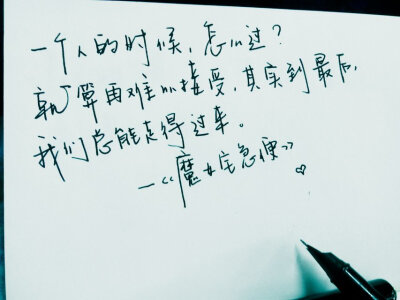 一个人的时候，怎么过？
就算再难以接受，其实到最后，
我们总能走得过来。
—《魔女宅急便》